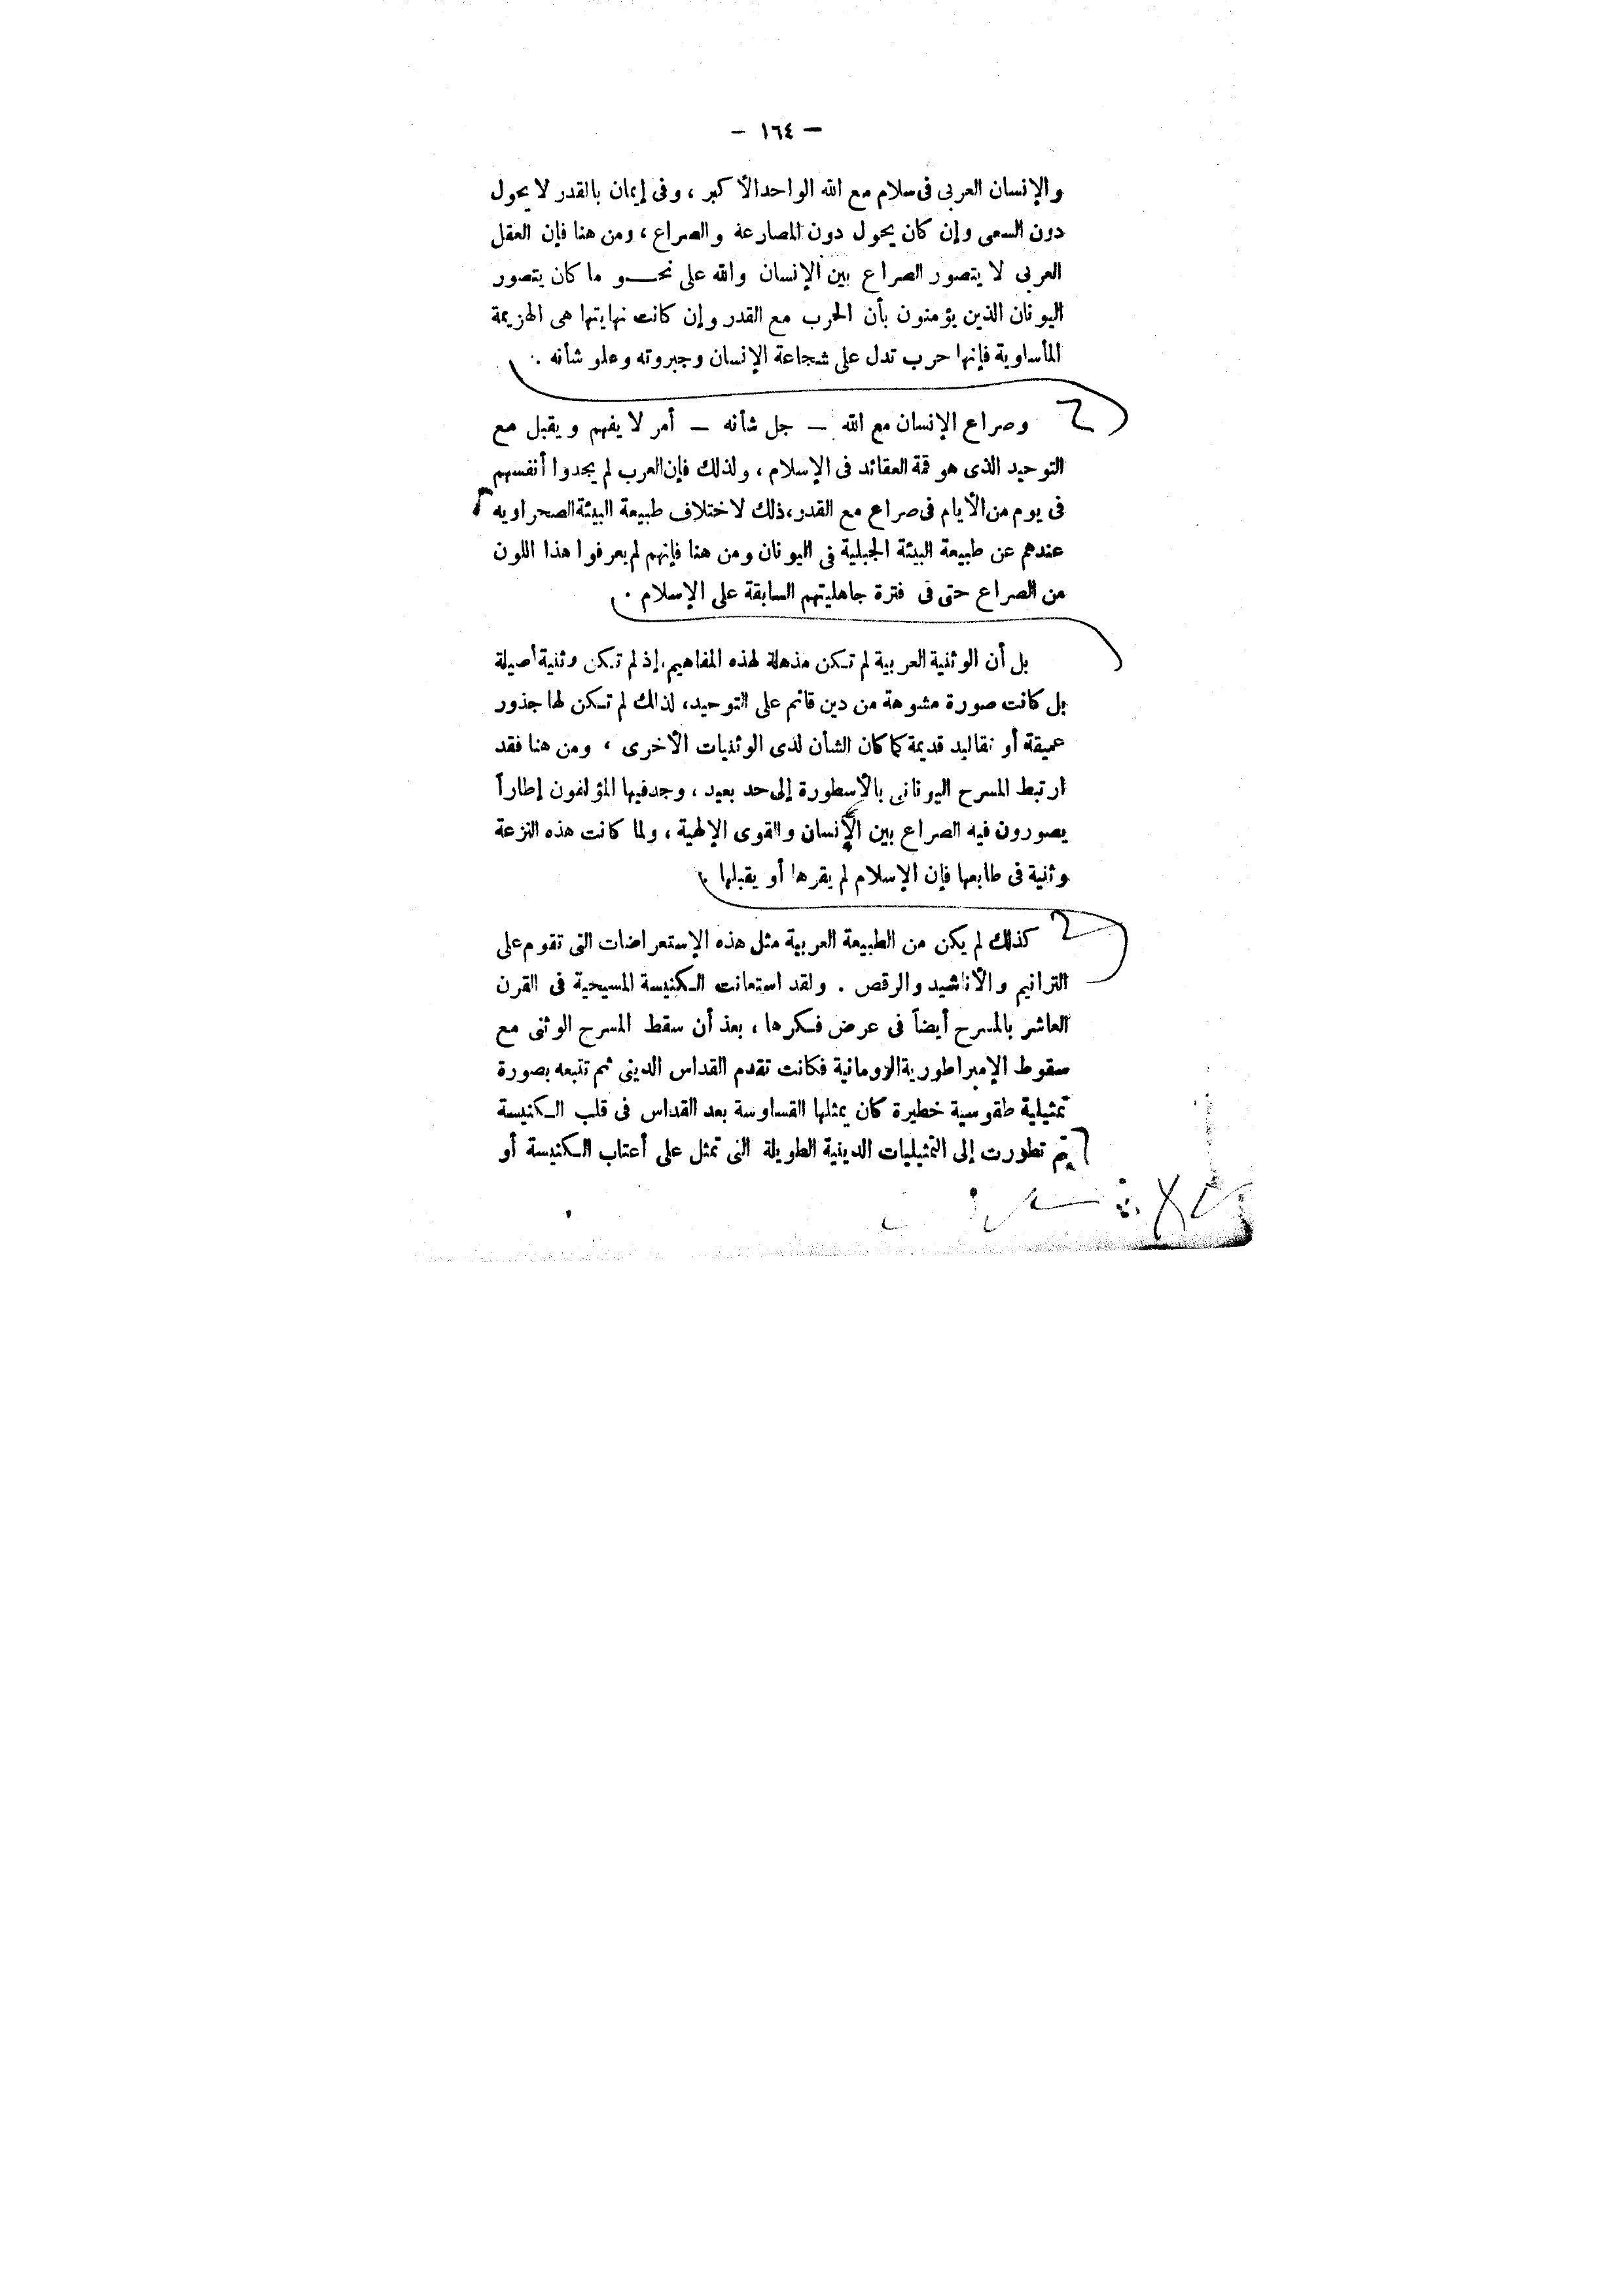 — ١٦٤ —
والإنسان العربى فى سلام مع الله الواحد الأكبر ، وفى إيمان بالقدر لا يحول
دون السعى وإن كان يحول دون المصارعة والصراع ، ومن هنا فإن العقل
العربى لا يتصور الصراع بين الإنسان والله على نحـــو ما كان يتصور
اليونان الذين يؤمنون بأن الحرب مع القدر وإن كانت نهايتها هى الهزيمة
المأساوية فإنها حرب تدل على شجاعة الإنسان وجبروته وعلو شأنه .
وصراع الإنسان مع الله — جل شأنه — أمر لا يفهم ويقبل مع
التوحيد الذى هو قمة العقائد فى الإسلام ، ولذلك فإن العرب لم يجدوا أنفسهم
فى يوم من الأيام فى صراع مع القدر، ذلك لاختلاف طبيعة البيئة الصحراويه
عندهم عن طبيعة البيئة الجبلية فى اليونان ومن هنا فإنهم لم يعرفوا هذا اللون
من الصراع حتى فى فترة جاهليتهم السابقة على الإسلام .
بل أن الوثنية العربية لم تكن مذهلة لهذه المفاهيم، إذ لم تكن وثنية أصيلة
بل كانت صورة مشوهة من دين قائم على التوحيد، لذلك لم تكن لها جذور
عميقة أو تقاليد قديمة كما كان الشأن لدى الوثنيات الأخرى ، ومن هنا فقد
ارتبط المسرح اليونانى بالأسطورة إلى حد بعيد ، وجد فيها المؤلفون إطاراً
يصورون فيه الصراع بين الإنسان والقوى الإلهية ، ولما كانت هذه النزعة
وثنية فى طابعها فإن الإسلام لم يقرها أو يقبلها .
كذلك لم يكن من الطبيعة العربية مثل هذه الإستعراضات التى تقوم على
الترانيم والأناشيد والرقص . ولقد استعانت الكنيسة المسيحية فى القرن
العاشر بالمسرح أيضاً فى عرض فكرها ، بعد أن سقط المسرح الوثنى مع
سقوط الإمبراطورية الرومانية فكانت تقدم القداس الدينى ثم تتبعه بصورة
تمثيلية طقوسية خطيرة كان يمثلها القساوسة بعد القداس فى قلب الكنيسة
ثم تطورت إلى التمثيليات الدينية الطويلة التى تمثل على أعتاب الكنيسة أو